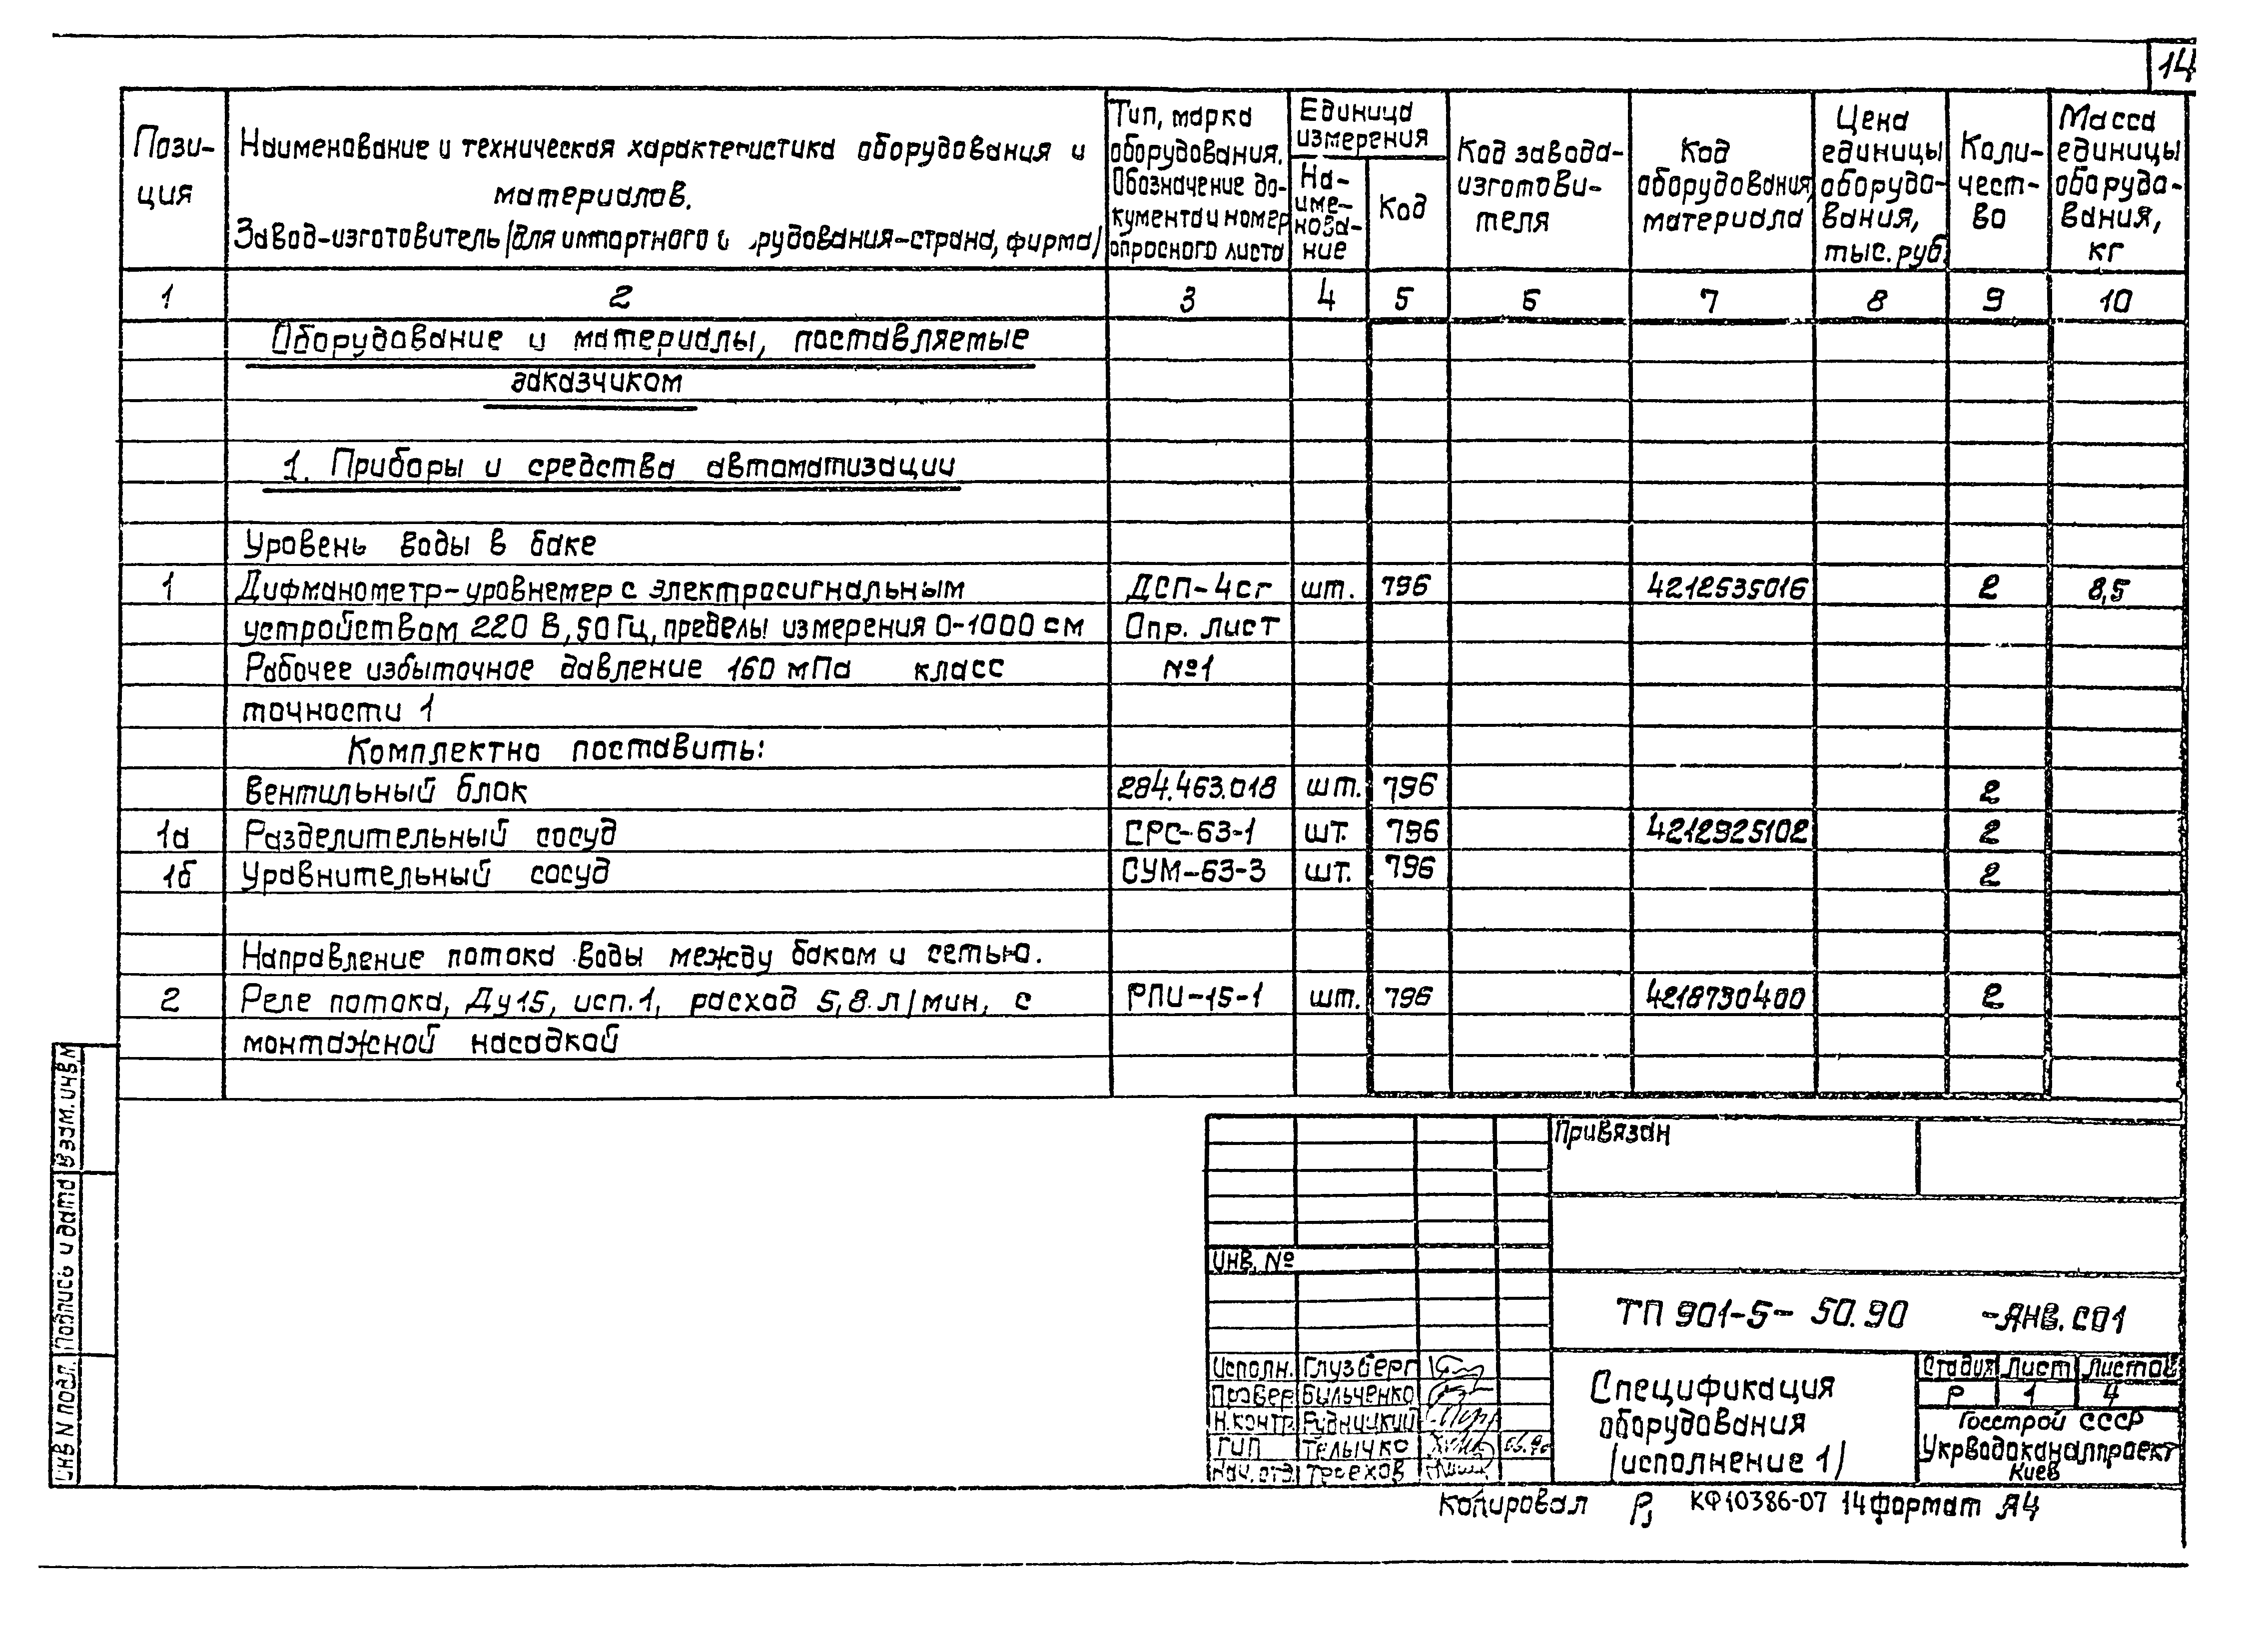 14
Пози-
ция
Наименование и техническая характеристика оборудования и
материалов.
Завод-изготовитель (для импортного рудования-страна, фирма)
Тип, марка
оборудования.
Обозначение до-
кумента и номер
опросного листа
Единица
измерения
На-
име-
нова-
ние
Код
Код завода-
изготови-
теля
Код
оборудования,
материала
Цена
единицы
оборудо-
вания,
тыс. руб.
Коли-
чест-
во
Масса
единицы
оборудо-
вания,
кг
1 2 3 4 5 6 7 8 9 10
Оборудование и материалы, поставляемые
заказчиком
1. Приборы и средства автоматизации
Уровень воды в баке
1 Дифманометр-уровнемер с электросигнальным ДСП-4сг шт. 796 4212535016 2 8,5
устройством 220 В, 50 Гц, пределы измерения 0-1000 см Опр. лист
Рабочее избыточное давление 160 мПа класс №1
точности 1
Комплектно поставить:
Вентильный блок 284.463.018 шт. 796 2
1а Разделительный сосуд СРС-63-1 шт. 796 4212925102 2
1б Уравнительный сосуд СУМ-63-3 шт. 796 2
Направление потока воды между баком и сетью.
2 Реле потока, Ду15, исп.1, расход 5,8 л/мин, с РПИ-15-1 шт. 796 4218730400 2
монтажной насадкой
Взам. инв. N
Подпись и дата
Инв N подл.
Привязан
Инв. №
ТП 901-5- 50.90 -АНВ.СО1
Исполн. Глузберг
Провер Быльченко
Н.контр. Рудницкий
ГИП Телычко
Нач. отд. Троехов
Спецификация
оборудования
(исполнение 1)
Стадия Лист Листов
Р 1 4
Госстрой СССР
Укрводоканалпроект
Киев
Копировал КФ10386-07 14 формат А4